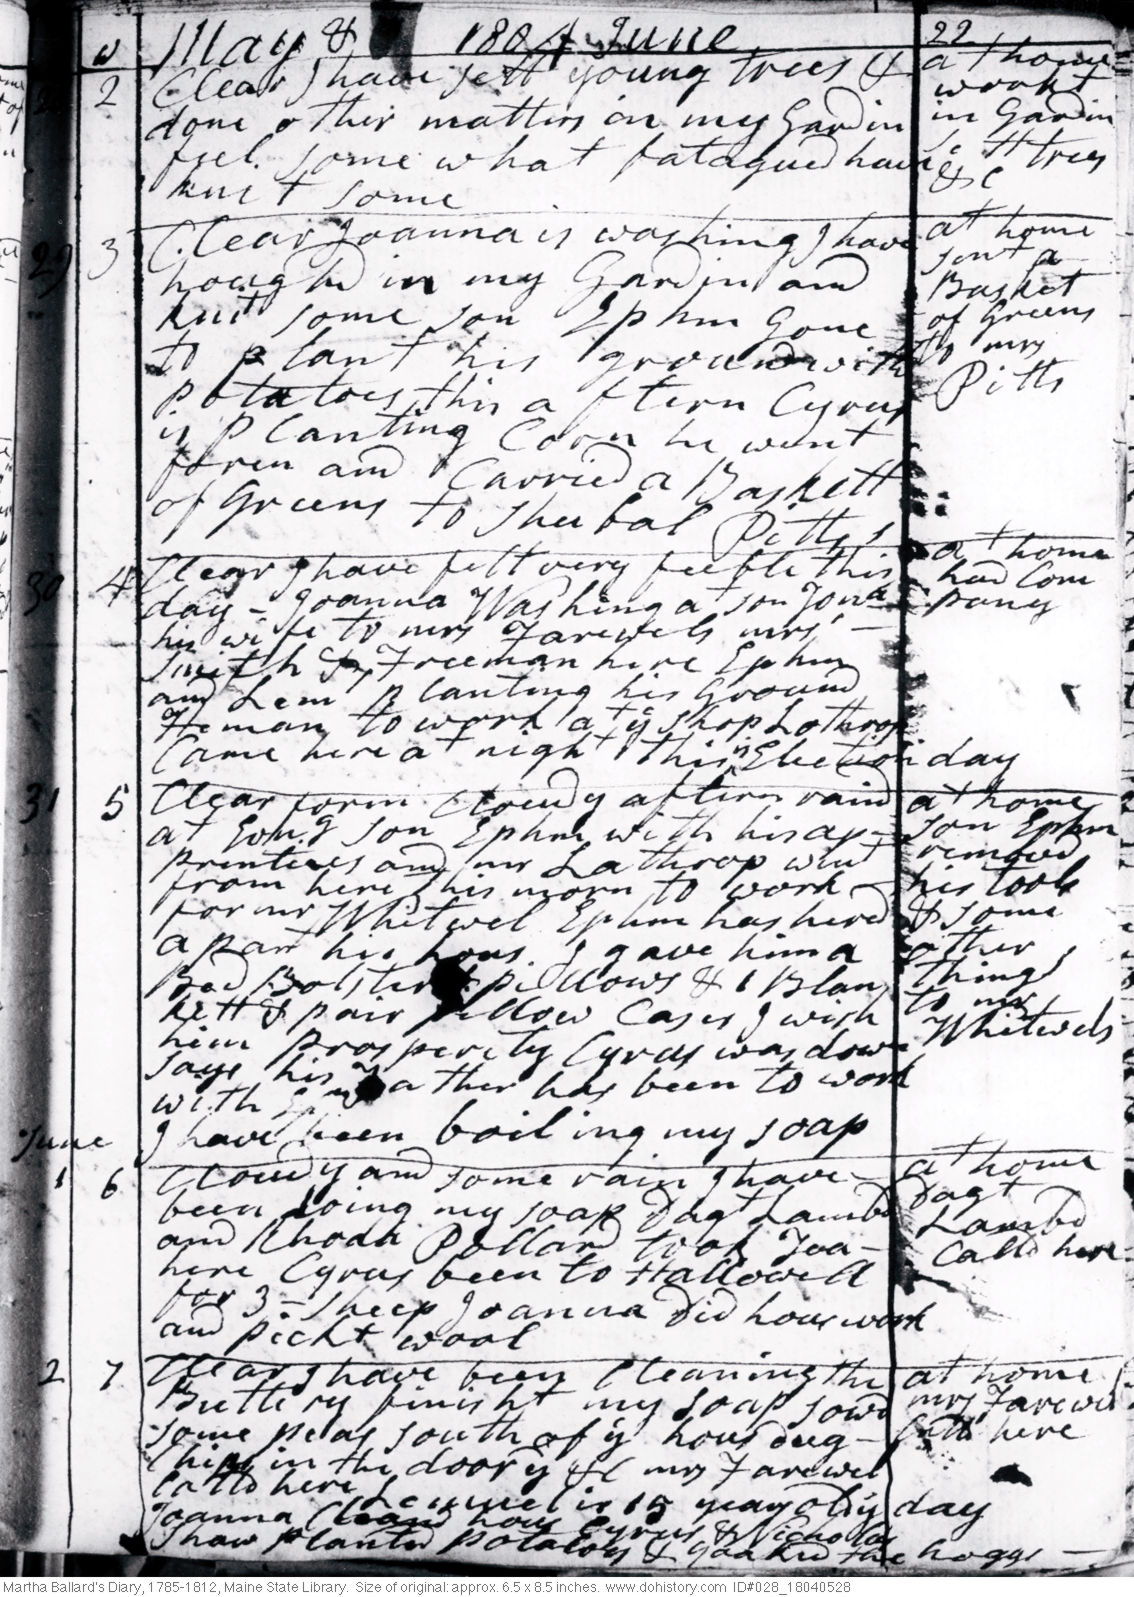 W May & 1804 June 22
28 2 Clear I have sett young trees &
done other matters in my Gardin
feel some what fatagued have
knit some
at home
workt
in Gardin
sett trees
&c
29 3 Clear Joanna is washing I have
houghd in my Gardin and
knit some son Ephm Gone
to plant his ground with
potatoes this aftern Cyrus
is planting Corn he went
foren and Carried a Baskett
of Greens to Shubal Pitts,s
at home
sent a
Basket
of Greens
to mrs
Pitts
30 4 Clear I have felt very feeble this
day - Joanna Washing at son Jona
his wife to mrs Farewels mrs
Smith & Freeman here Ephm
and Lem planting his Ground
Heman to work at ye shop Lothrop
Came here at night this is Election day
at home
had Com
pany
31 5 Clear forn Cloudy aftern rain
at Evng son Ephm with his ap-
printices and mr Lathrop went
from here this morn to work
for mr Whitwel Ephm has hired
a part his hous. I gave him a
Bed Bolster & pillows & 1 Blan
kett & pair pillow Cases I wish
him prosperity Cyrus was down
says his Father has been to work
with Ephm
I have been boiling my soap
at home
son Ephm
removd
his tools
& some
other
things
to mr
Whitwels
June
1 6 Cloudy and some rain I have
been doing my soap Dagt Lambd
and Rhoda Pollard took Tea
here Cyrus been to Hallowell
for 3 - sheep Joanna Did hous work
and pickt wool
at home
Dagt
Lambd
Calld here
2 7 Clear I have been Cleaning the
Buttery finisht my soap sowd
some peas south of ye hous dug
Chips in the door yd &C mrs Farewel
Calld here
Lemuel is 15 years old ys day
Joanna Cleand hous Cyrus & Nicholas
Shaw planted potatoes & yoaked the hoggs
at home
mrs Farewel
Calld here
Martha Ballard's Diary, 1785-1812, Maine State Library. Size of original: approx. 6.5 x 8.5 inches. www.dohistory.com ID#028_18040528